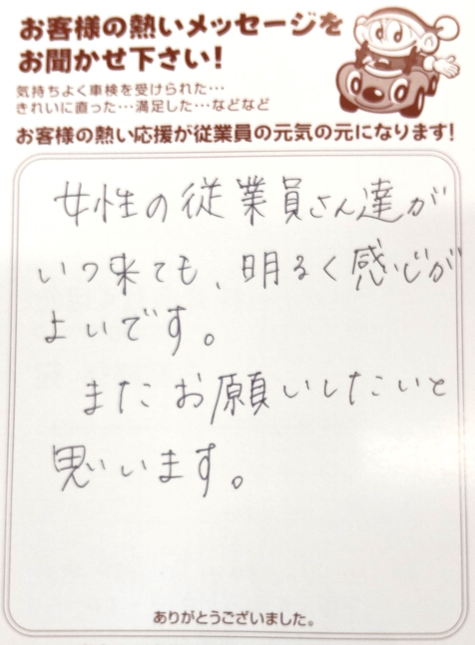 お客様の熱いメッセージを
お聞かせ下さい!
気持ちよく車検を受けられた…
きれいに直った…満足した…などなど
お客様の熱い応援が従業員の元気の元になります!
女性の従業員さん達が
いつ来ても、明るく感じが
よいです。
またお願いしたいと
思います。
ありがとうございました。